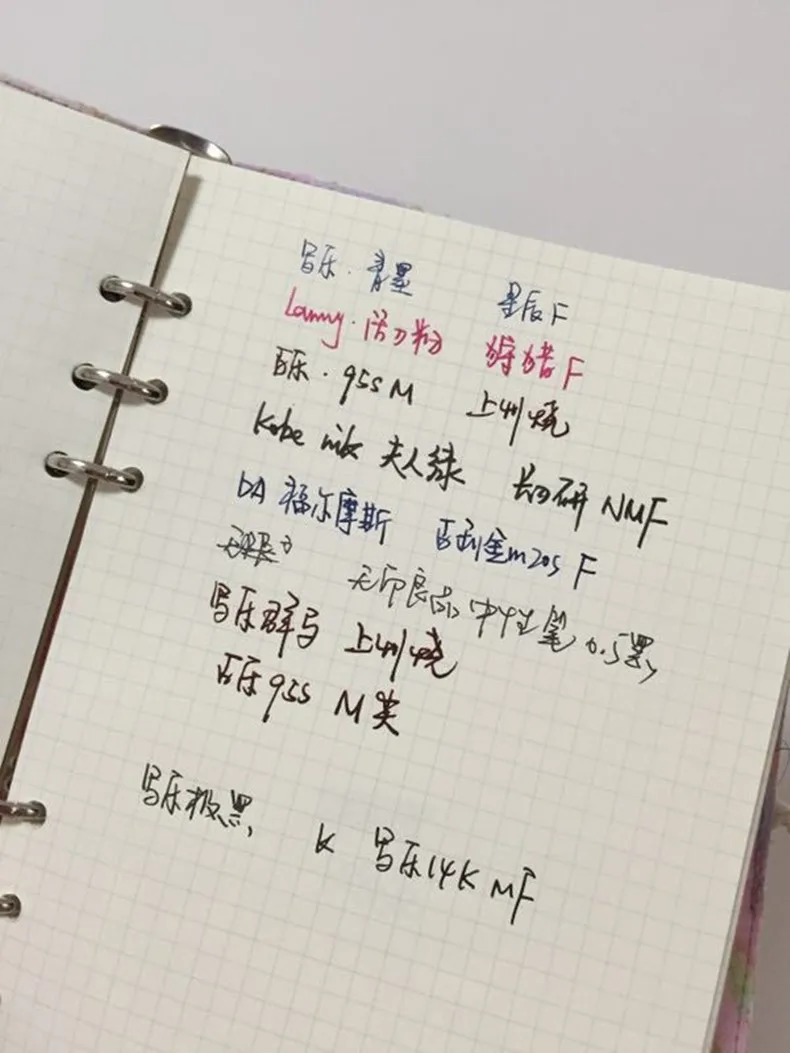 写乐·青墨 星辰F
Lamy·活力粉 狩猎F
百乐·95S M 上州烧
Kobe ink 夫人绿 长刀研 NMF
DA 福尔摩斯 百利金m205 F
无印良品 中性笔 0.5黑
写乐群马 上州烧
百乐95S M尖
写乐极黑 K 写乐14K MF